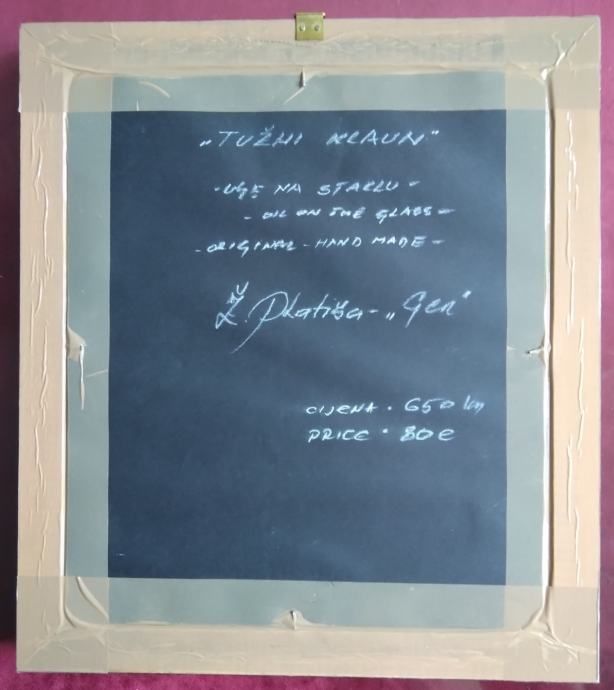 „TUŽNI KLAUN"
- ULJE NA STAKLU -
- OIL ON THE GLASS -
- ORIGINAL - HAND MADE -
Ž. Platiša - „Gen"
CIJENA · 650 kn
PRICE · 80 €